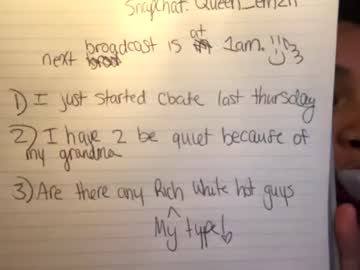 Snapchat: Queen_
next brogdcast is at 1am.
1) I just started cbate last thursday
2) I have 2 be quiet because of
my grandma
3) Are there any Rich white hot guys
My type